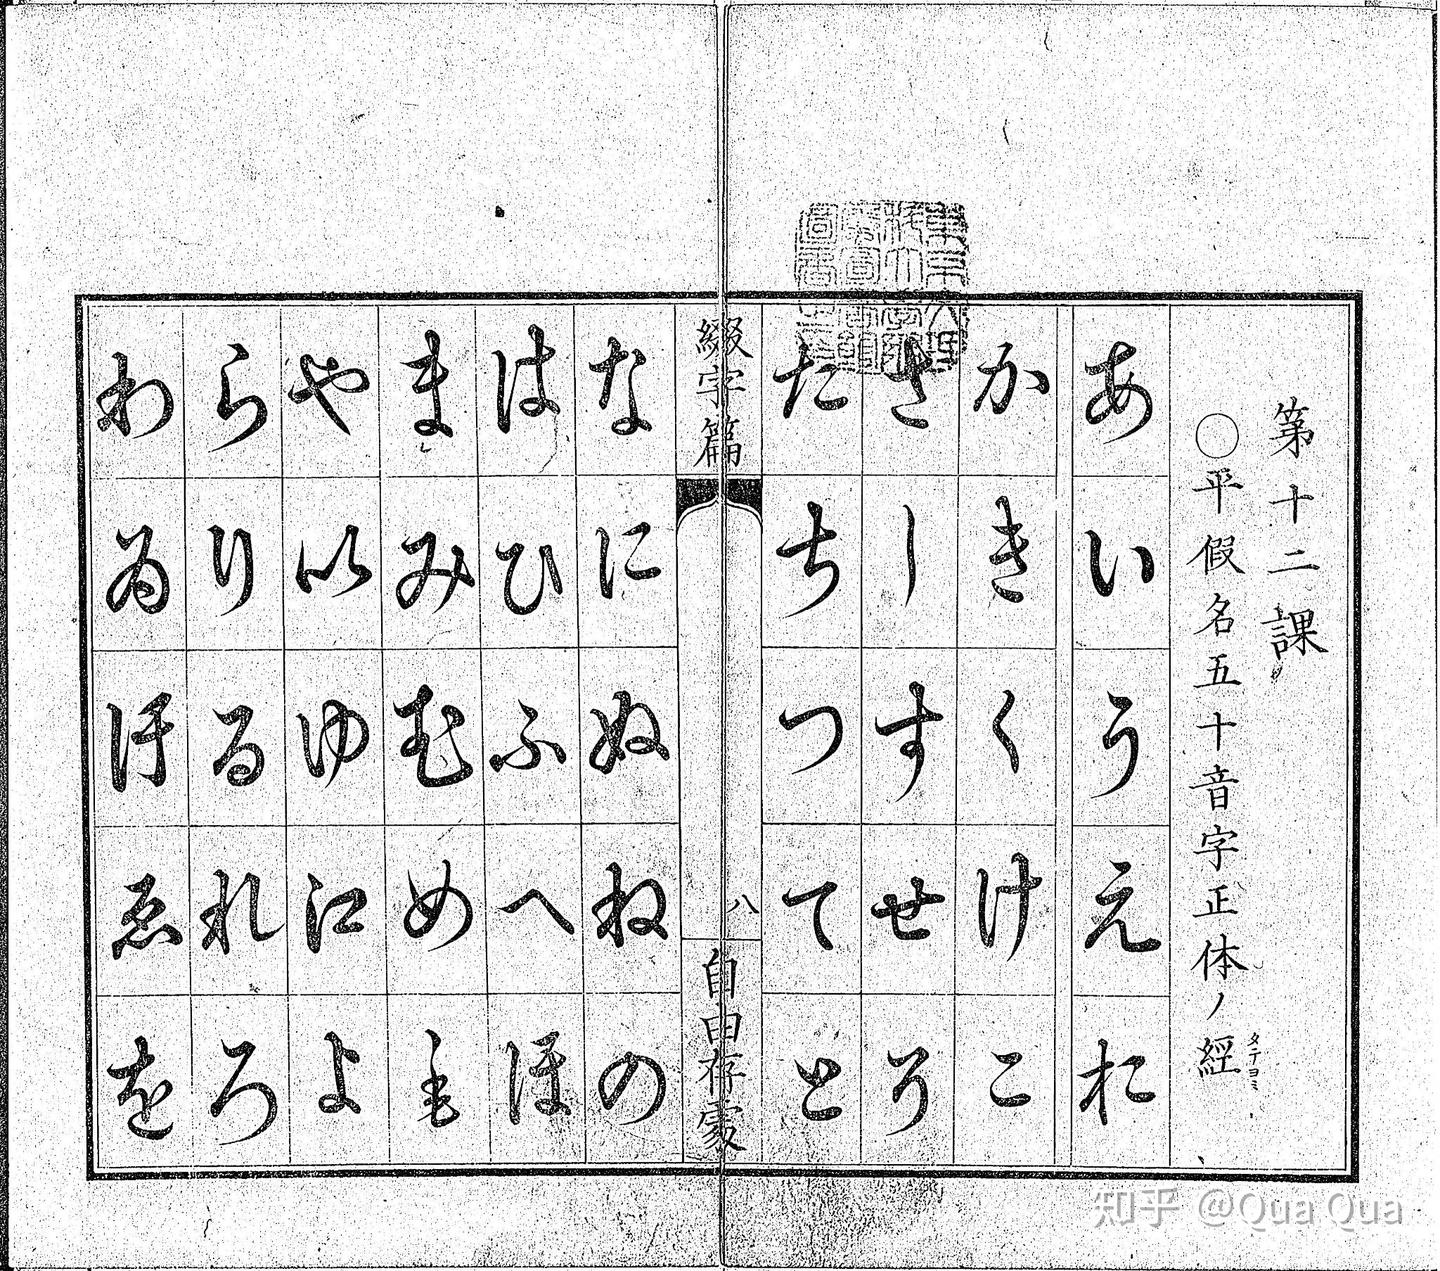 第十二課
○平假名五十音字正体ノ經
タテヨミ
あいうえお
かきくけこ
さしすせそ
たちつてと
綴字篇
八
自由存
なにぬねの
はひふへほ
まみむめも
や以ゆ江よ
らりるれろ
わゐ汙ゑを
知乎 @Qua Qua